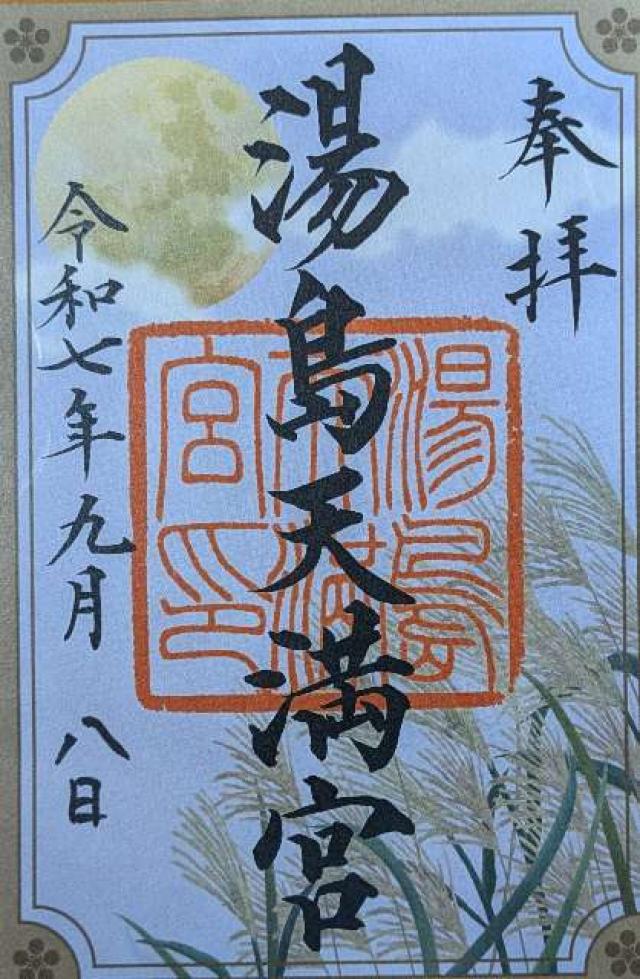 奉拝
湯島天満宮
湯島天満宮印
令和七年九月八日